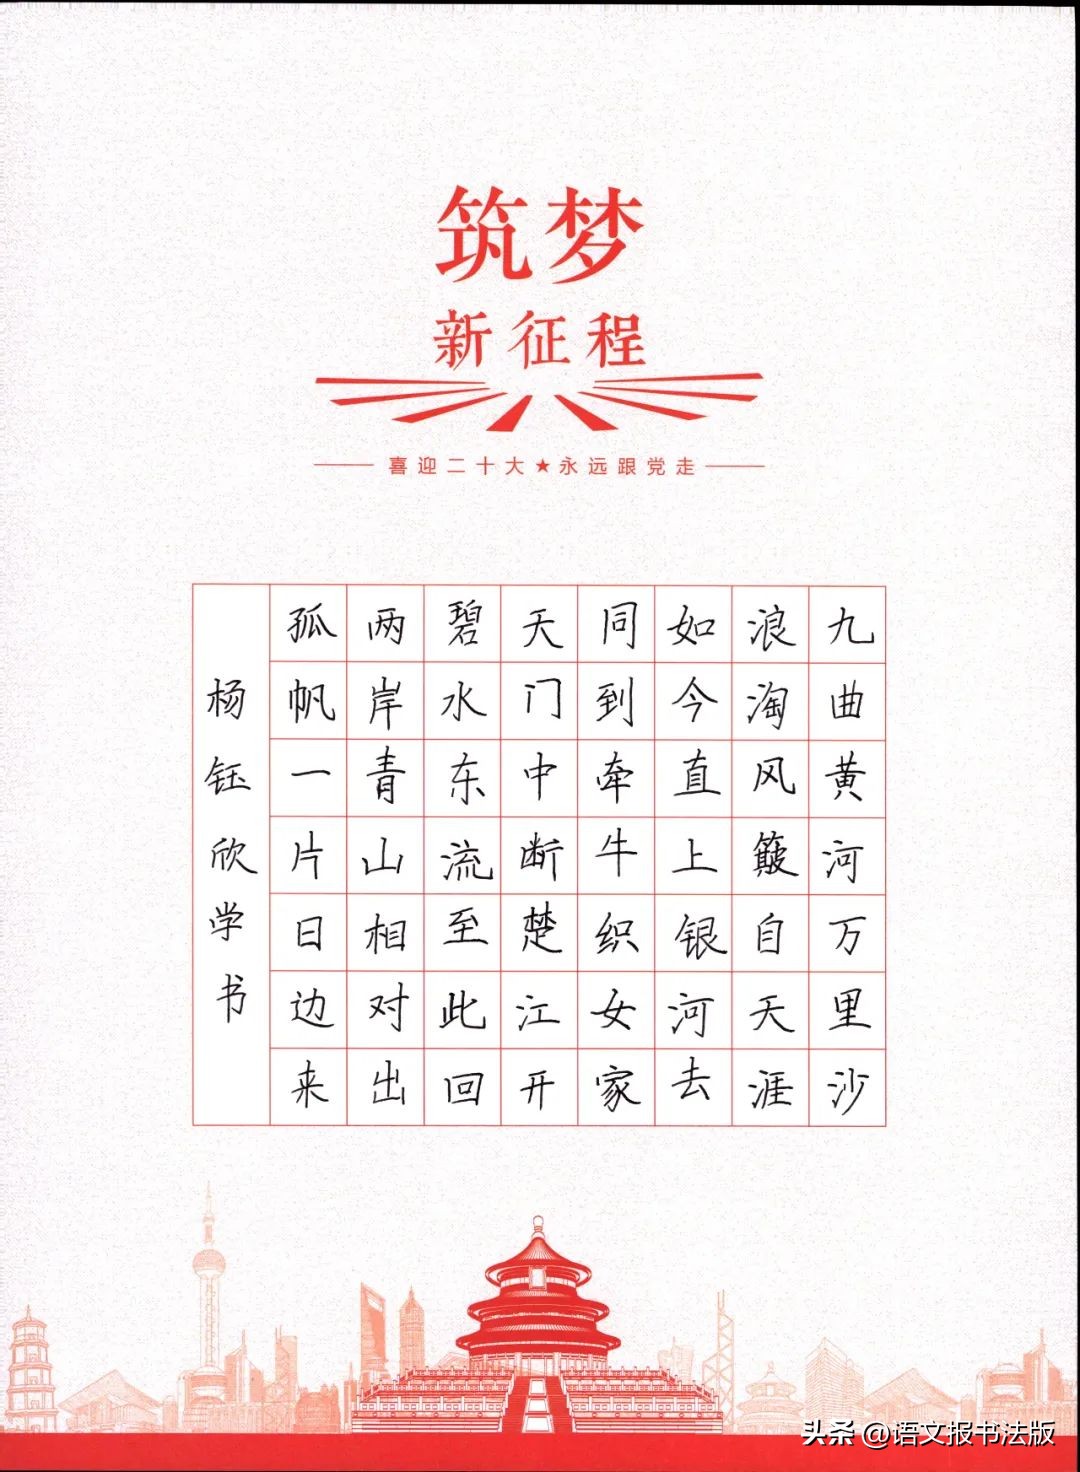 筑梦
新征程
喜迎二十大★永远跟党走
九曲黄河万里沙
浪淘风簸自天涯
如今直上银河去
同到牵牛织女家
天门中断楚江开
碧水东流至此回
两岸青山相对出
孤帆一片日边来
杨钰欣学书
头条@语文报书法版